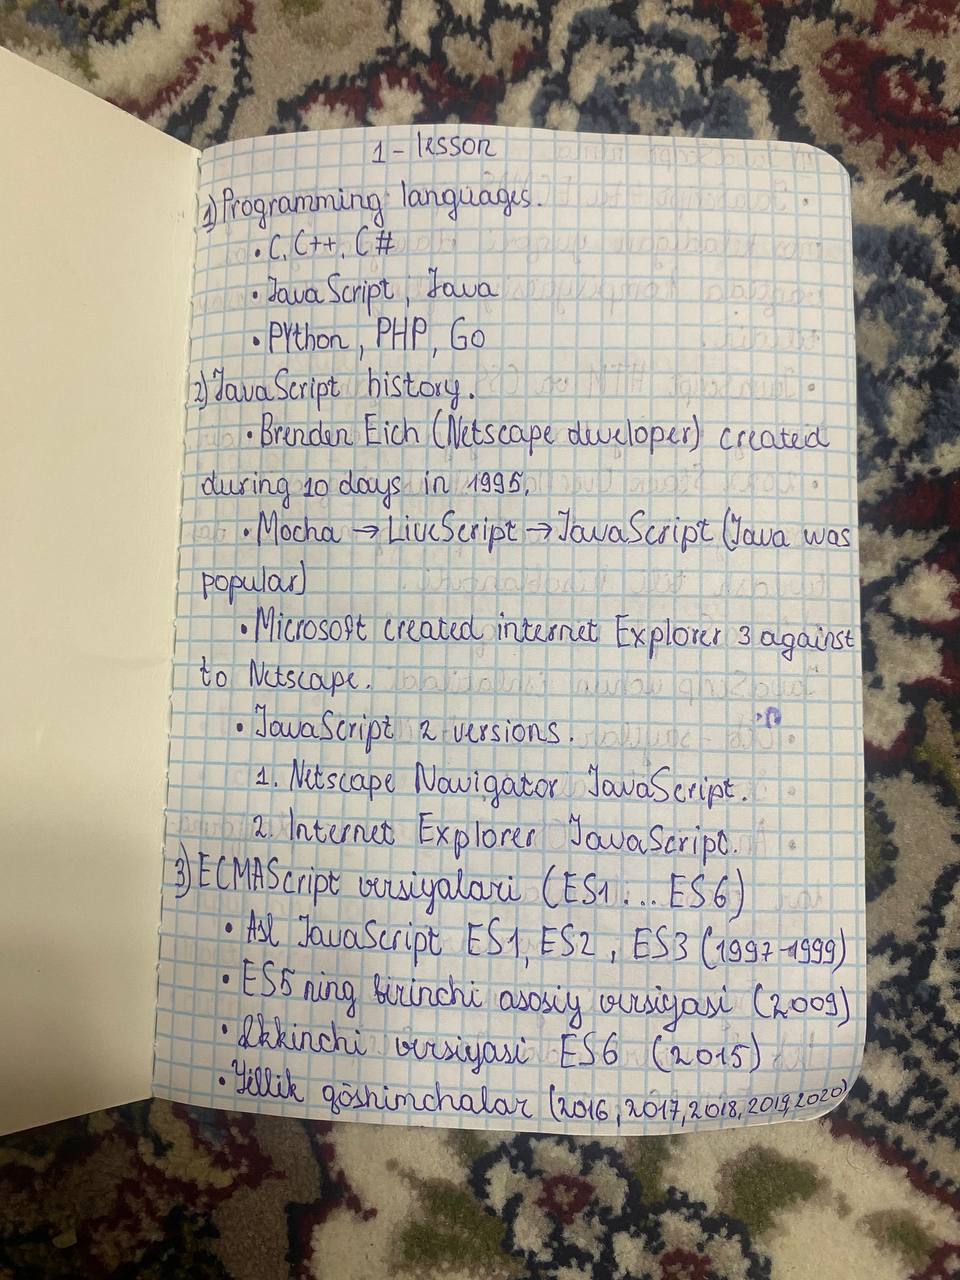 1 - lesson
1) Programming languages.
• C, C++, C#
• JavaScript, Java
• PYthon, PHP, Go
2) JavaScript history.
• Brenden Eich (Netscape developer) created
during 10 days in 1995.
• Mocha → LiveScript → JavaScript (Java was
popular)
• Microsoft created internet Explorer 3 against
to Netscape.
• JavaScript 2 versions.
1. Netscape Navigator JavaScript.
2. Internet Explorer JavaScript.
3) ECMAScript versiyalari (ES1 ... ES6)
• Asl JavaScript ES1, ES2, ES3 (1997-1999)
• ES5 ning birinchi asosiy versiyasi (2009)
• Ikkinchi versiyasi ES6 (2015)
• Yillik qoshimchalar (2016, 2017, 2018, 2019, 2020)